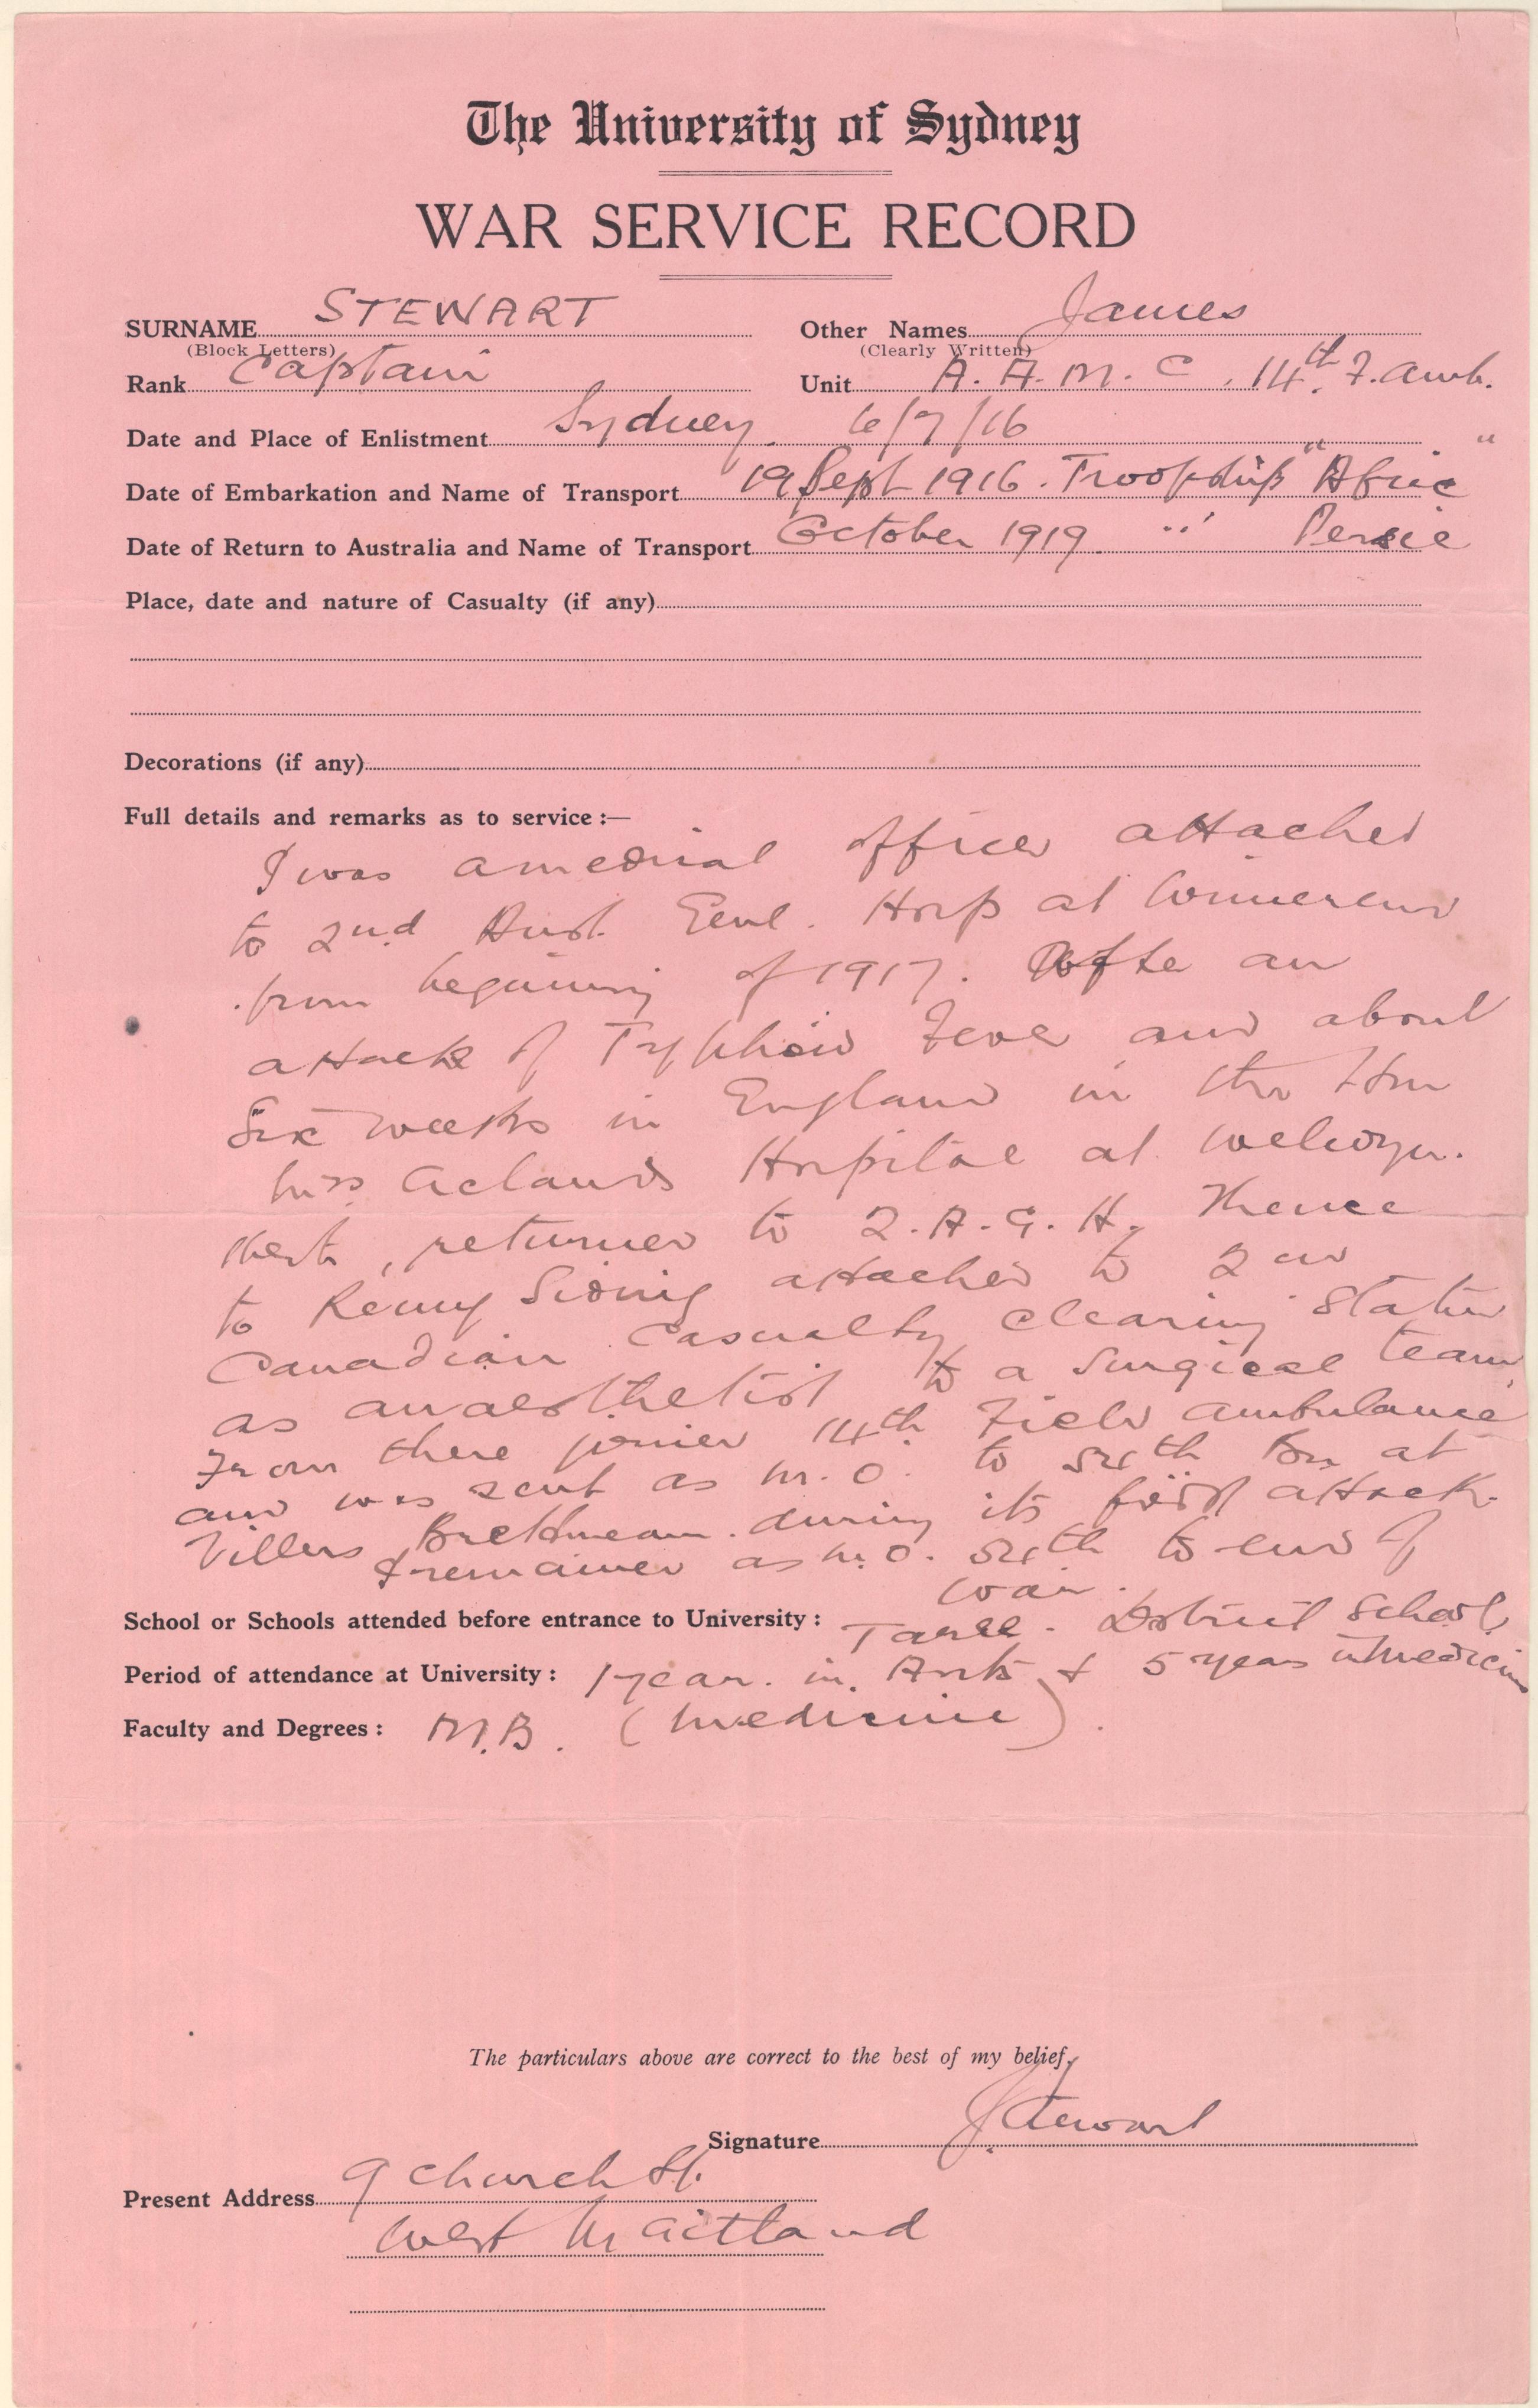 The University of Sydney
WAR SERVICE RECORD
SURNAME STEWART Other Names James
(Block Letters) (Clearly Written)
Rank Captain Unit A. A. M. C. 14th F. Amb.
Date and Place of Enlistment Sydney. 6/7/16
Date of Embarkation and Name of Transport 19 Sept 1916. Troopship "Afric"
Date of Return to Australia and Name of Transport October 1919 " Persic
Place, date and nature of Casualty (if any)
Decorations (if any)
Full details and remarks as to service :—
I was a medical officer attached
to 2nd Aust. Genl. Hosp at Wimereux
from beginning of 1917. After an
attack of Typhoid Fever and about
Six weeks in England in the Hon
Miss Aclands Hospital at Welwyn.
Herts, returned to 2. A. G. H. Thence
to Remy Siding attached to 2nd
Canadian Casualty Clearing Station
as anaesthetist to a Surgical team.
From there joined 14th Field Ambulance
and was sent as M. O. to 54th Bn at
Villers Bretonneau. during its first attack.
& remained as M. O. 54th to end of
war.
School or Schools attended before entrance to University : Taree. District School,
Period of attendance at University : 1 year. in. Arts & 5 years in Medicine
Faculty and Degrees : M.B. (Medicine).
The particulars above are correct to the best of my belief,
Signature J. Stewart
Present Address 9 Church St.
West Maitland